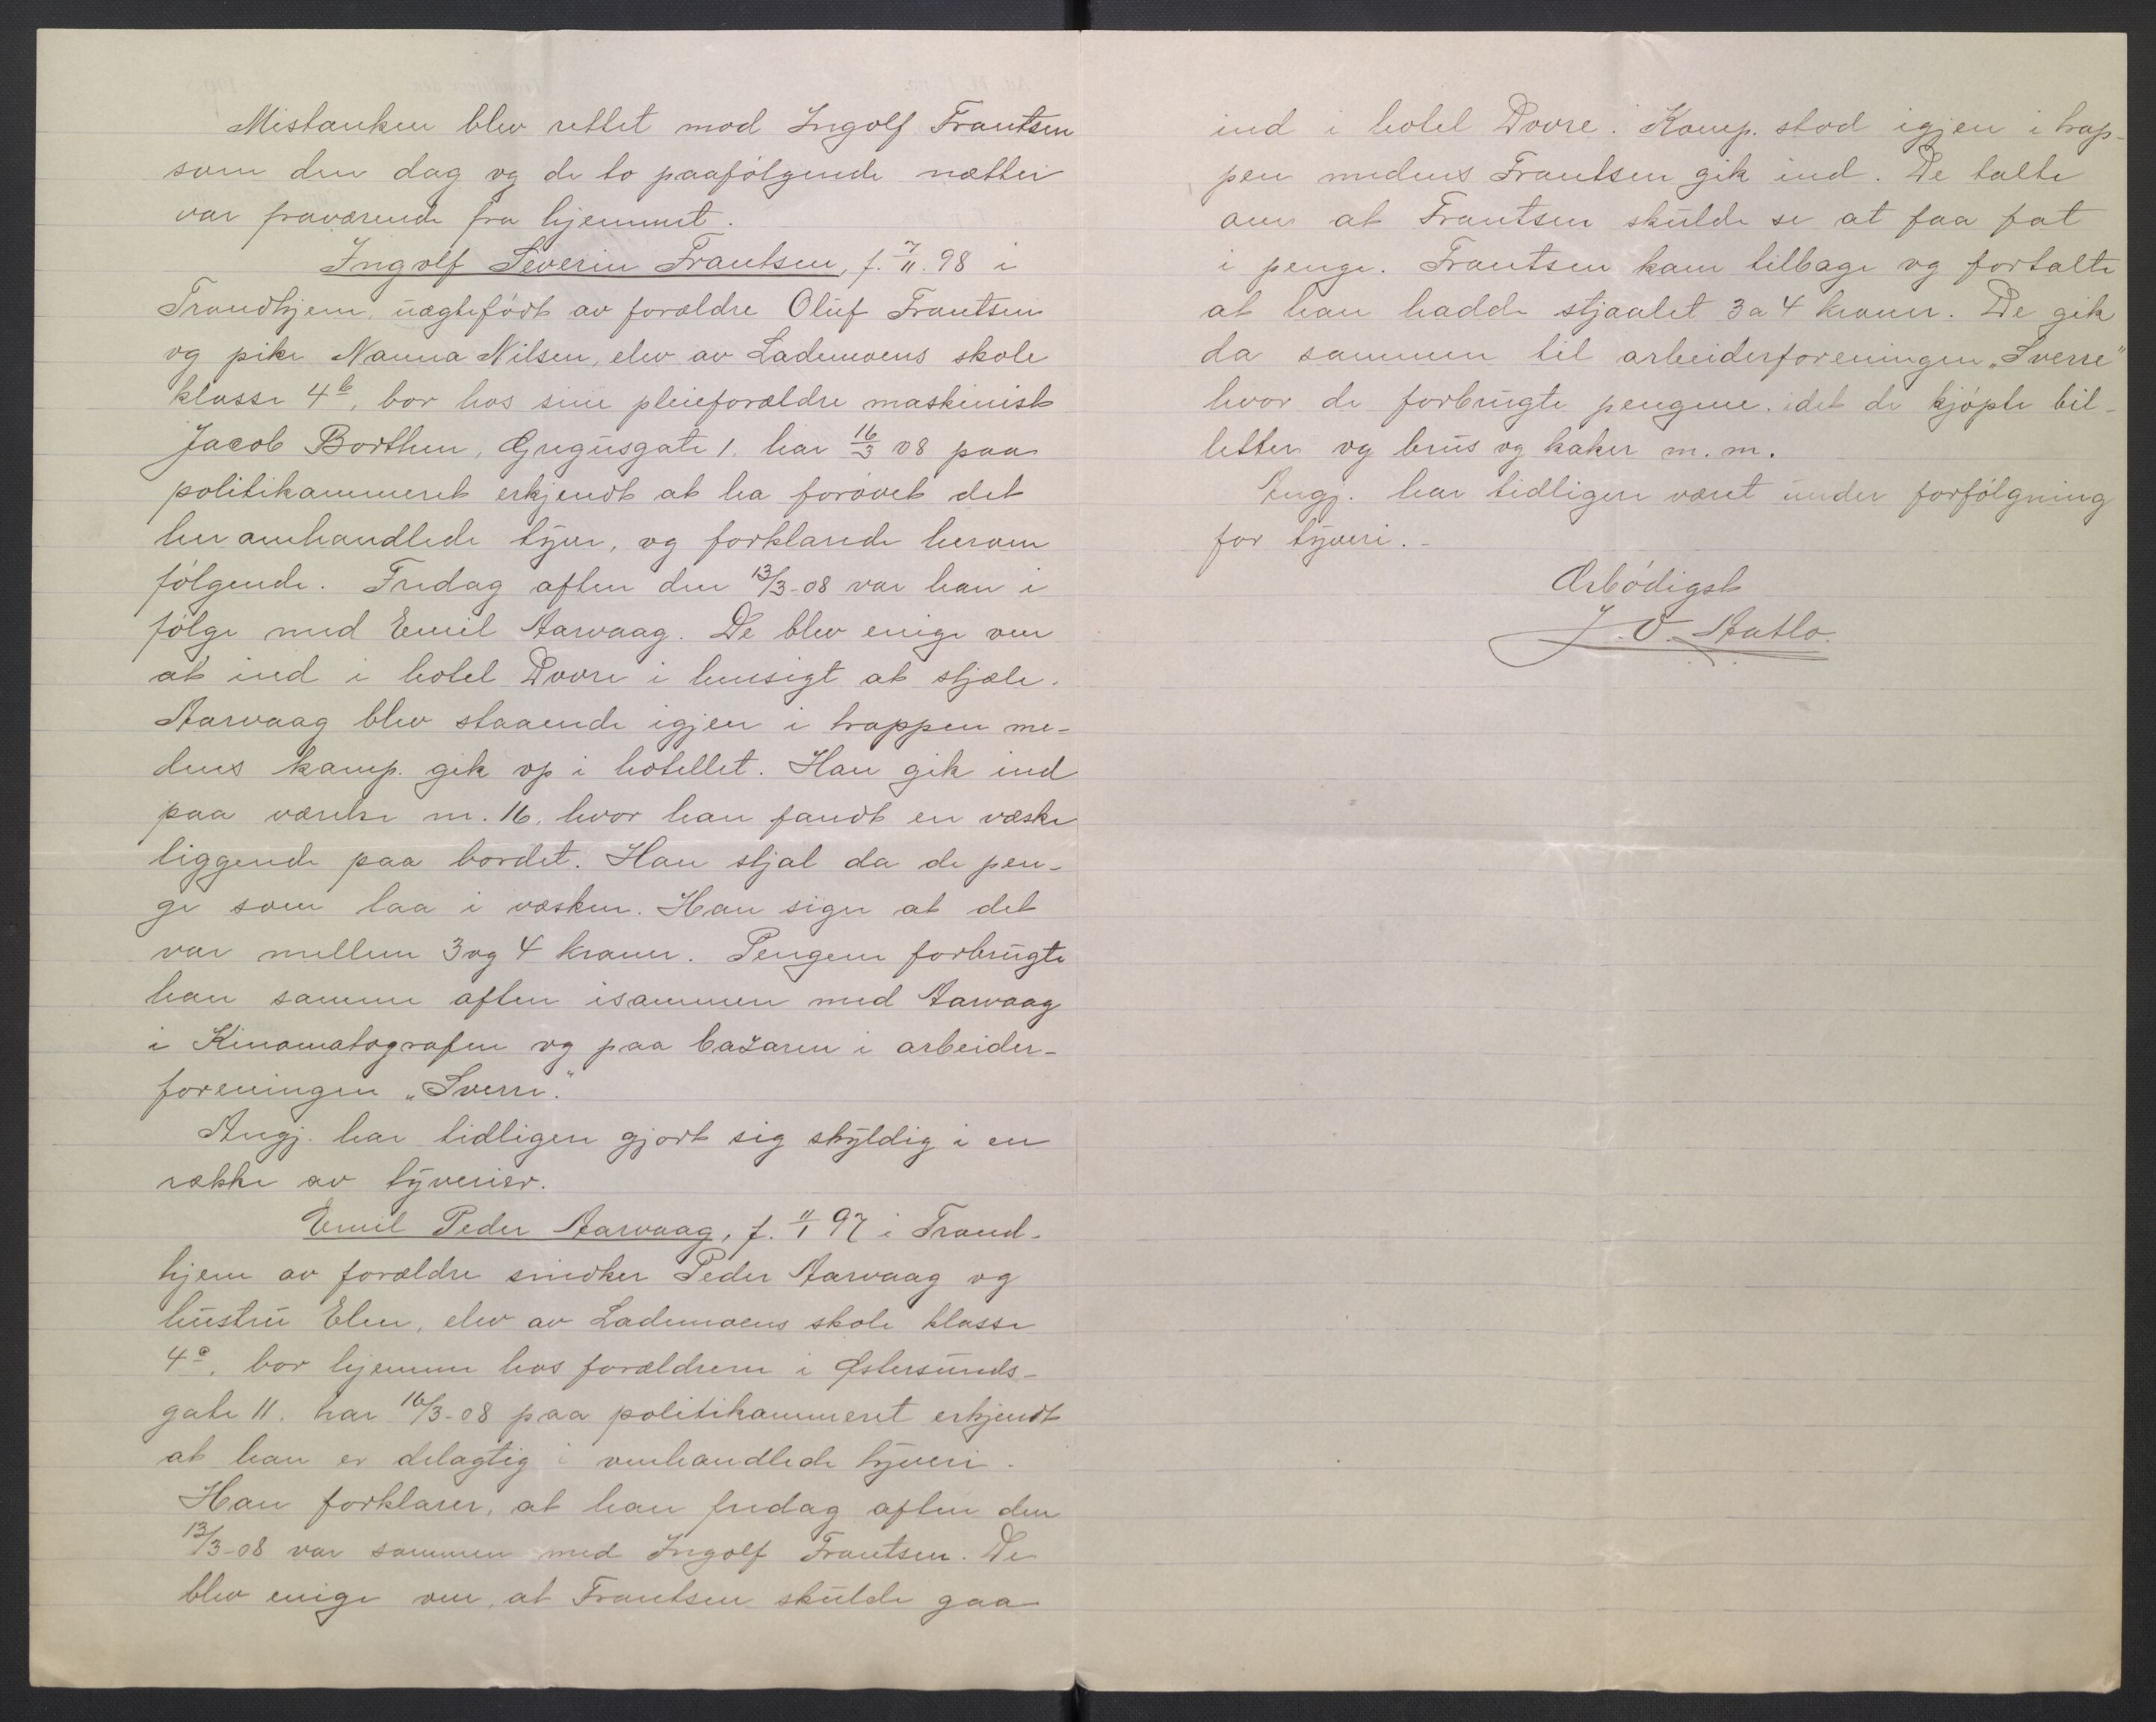 Mistanken blev rettet mod Ingolf Frantsen
som den dag og de to paafølgende nætter
var fraværende fra hjemmet.
Ingolf Severin Frantsen, f. 7/11. 98 i
Trondhjem, uægtefødt av forældre Oluf Frantsen
og pike Nanna Nilsen, elev av Lademoens skole
klasse 4b, bor hos sine pleieforældre maskinist
Jacob Borthen, Gregusgate 1. har 16/3 08 paa
politikammeret erkjendt at ha forøvet det
her omhandlede tyve, og forklarede herom
følgende. Fredag aften den 13/3-08 var han i
følge med Emil Aarvaag. De blev enige om
at ind i hotel Dovre i hensigt at stjæle.
Aarvaag blev staaende igjen i trappen me-
dens komp. gik op i hotellet. Han gik ind
paa værelse nr. 16, hvor han fandt en væske
liggende paa bordet. Han stjal da de pen-
ge som laa i væsken. Han siger at det
var mellem 3 og 4 kroner. Pengene forbrugte
han samme aften isammen med Aarvaag
i Kinomatografen og paa bazaren i arbeider-
foreningen „Sverre."
Angj. har tidligere gjort sig skyldig i en
række av tyverier.
Emil Peder Aarvaag, f. 11/1 97 i Trond-
hjem av forældre snedker Peder Aarvaag og
hustru Elen, elev av Lademoens skole klasse
4a, bor hjemme hos forældrene i Østersunds-
gate 11. har 16/3-08 paa politikammeret erkjendt
at han er delagtig i omhandlede tyveri.
Han forklarer, at han fredag aften den
13/3-08 var sammen med Ingolf Frantsen. De
blev enige om, at Frantsen skulde gaa
ind i hotel Dovre. Komp. stod igjen i trap-
pen medens Frantsen gik ind. De talte
om at Frantsen skulde se at faa fat
i penge. Frantsen kom tilbage og fortalte
at han hadde stjaalet 3 a 4 kroner. De gik
da sammen til arbeiderforeningen „Sverre"
hvor de forbrugte pengene. idet de kjøpte bil-
letter og brus og kaker m. m.
Angj. har tidligere været under forfølgning
for tyveri.-
Ærbødigst
J. O. Aatlo.